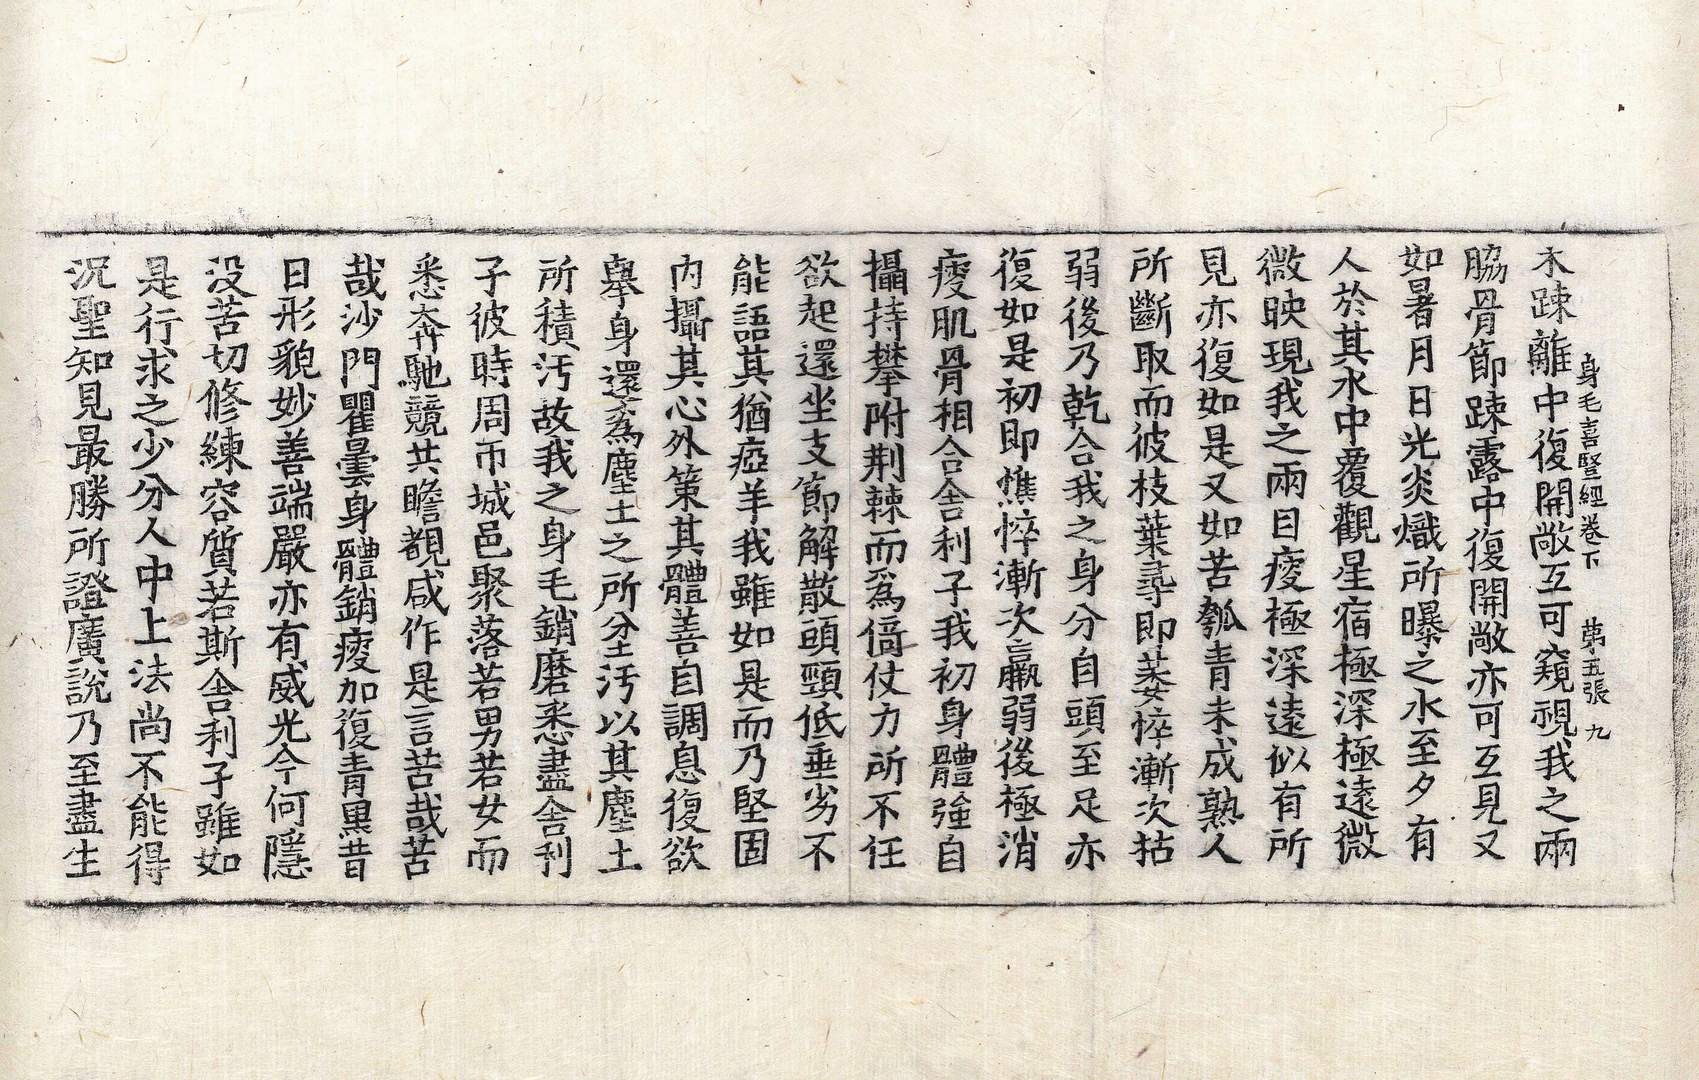 身毛喜竪經卷下 第五張 九
木踈離中復開敞互可窺視我之兩
脇骨節踈露中復開敞亦可互見又
如暑月日光炎熾所曝之水至夕有
人於其水中覆觀星宿極深極遠微
微映現我之兩目瘦極深遠似有所
見亦復如是又如苦瓠青未成熟人
所斷取而彼枝葉尋即萎悴漸次枯
弱後乃乾合我之身分自頭至足亦
復如是初即憔悴漸次羸弱後極消
瘦肌骨相合舍利子我初身體強自
攝持攀附荆棘而爲倚仗力所不任
欲起還坐支節解散頭頸低垂劣不
能語其猶瘂羊我雖如是而乃堅固
內攝其心外策其體善自調息復欲
舉身還爲塵土之所坌汚以其塵土
所積汚故我之身毛銷磨悉盡舍利
子彼時周帀城邑聚落若男若女而
悉奔馳競共瞻覩咸作是言苦哉苦
哉沙門瞿曇身體銷瘦加復青黒昔
日形貌妙善端嚴亦有威光今何隱
没苦切修練容質若斯舍利子雖如
是行求之少分人中上法尚不能得
況聖知見最勝所證廣說乃至盡生